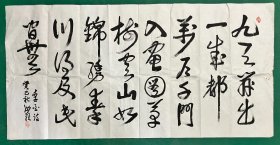 九天開出
一成都
萬户千門
入畫圖草
樹雲山如
錦繡秦
川得及此
間無
李白詩
癸巳秋